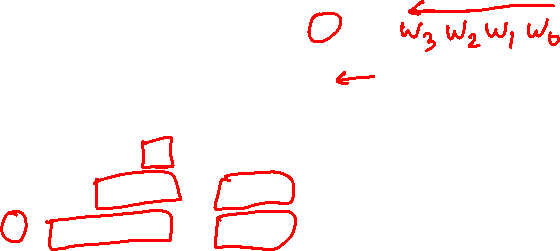 w₃ w₂ w₁ w₀